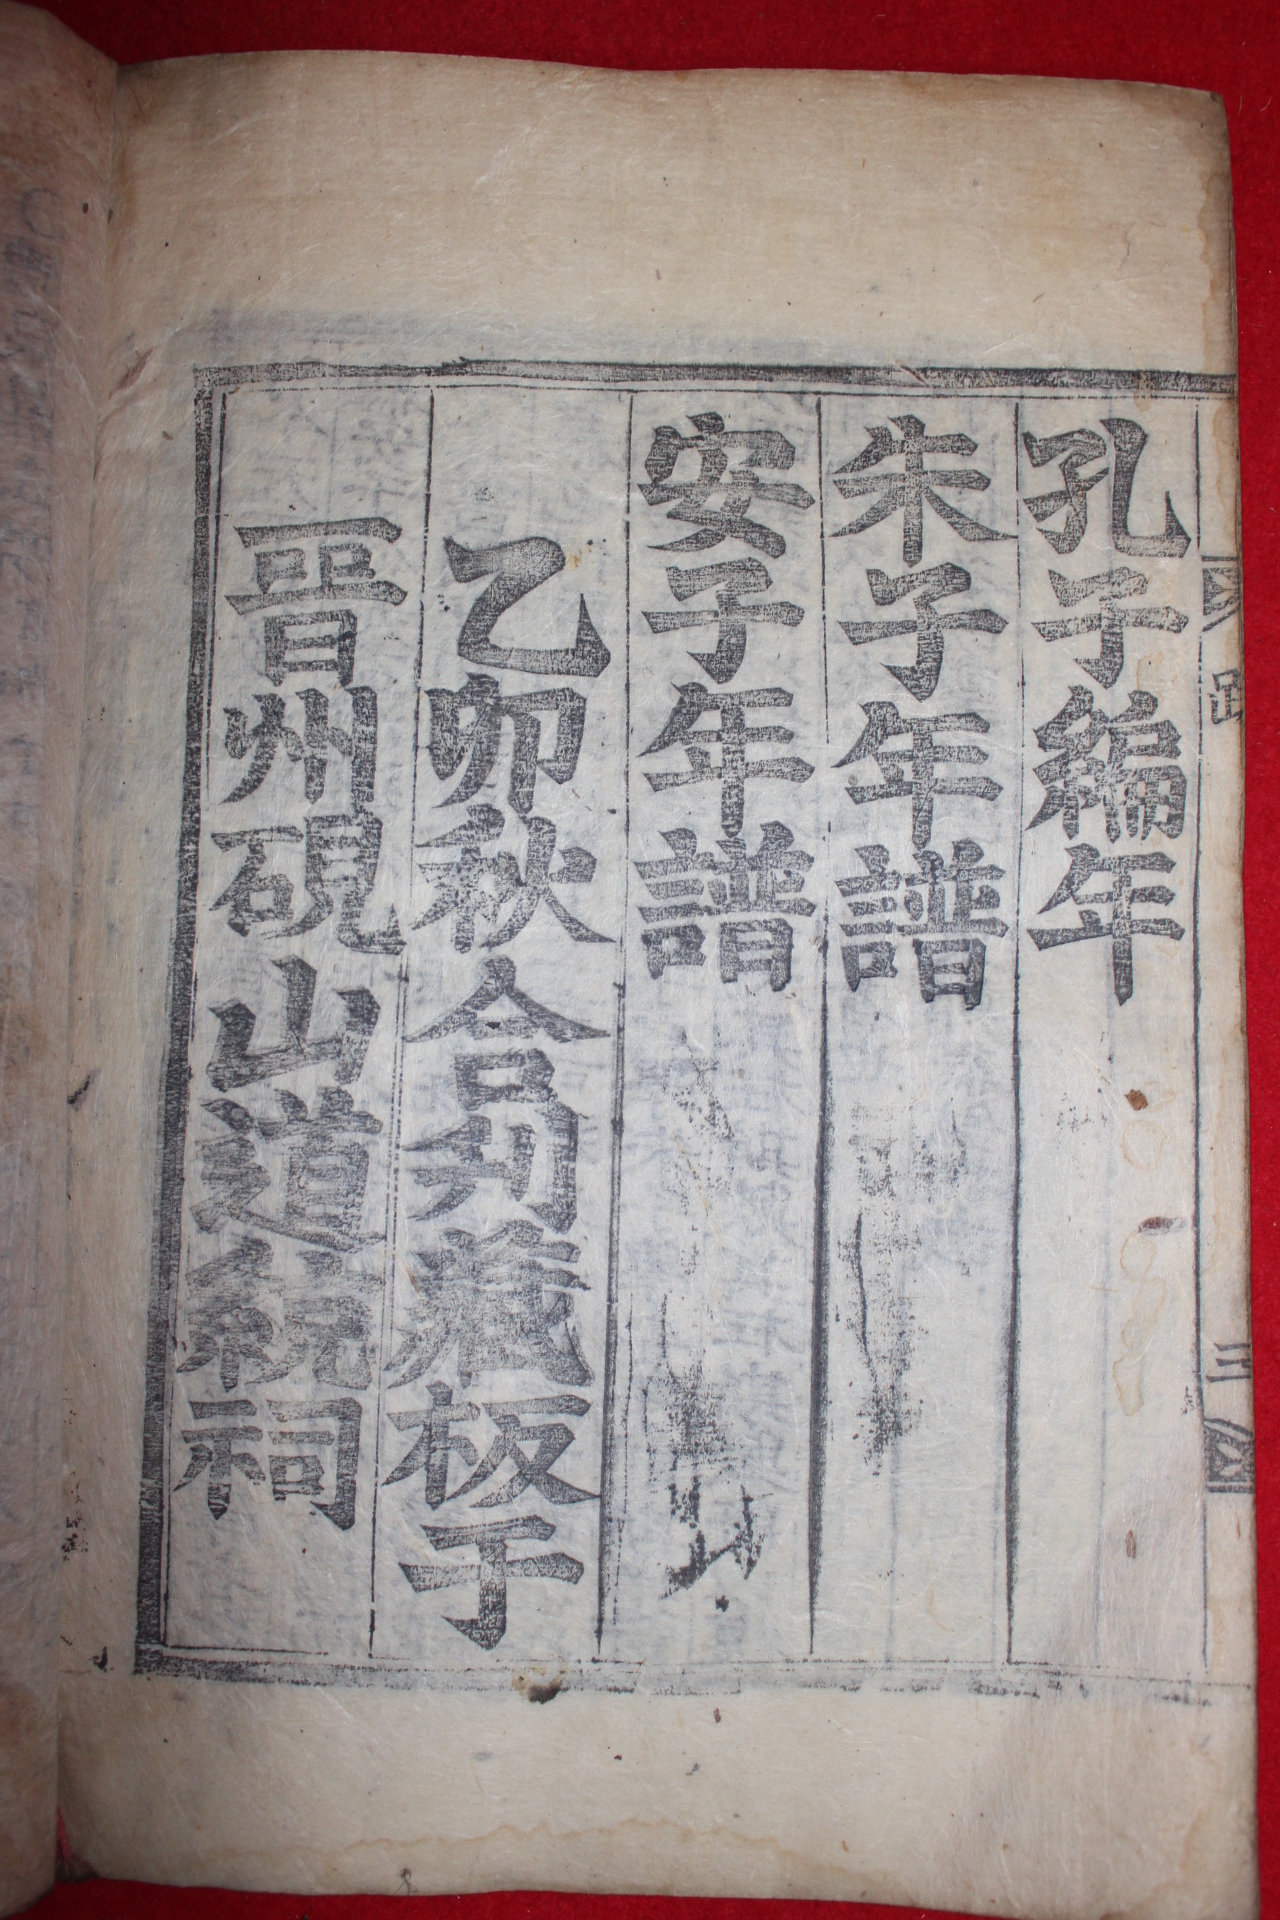 孔子編年
朱子年譜
安子年譜
乙卯秋合刋藏板于
晋州硯山道統祠
跋
三